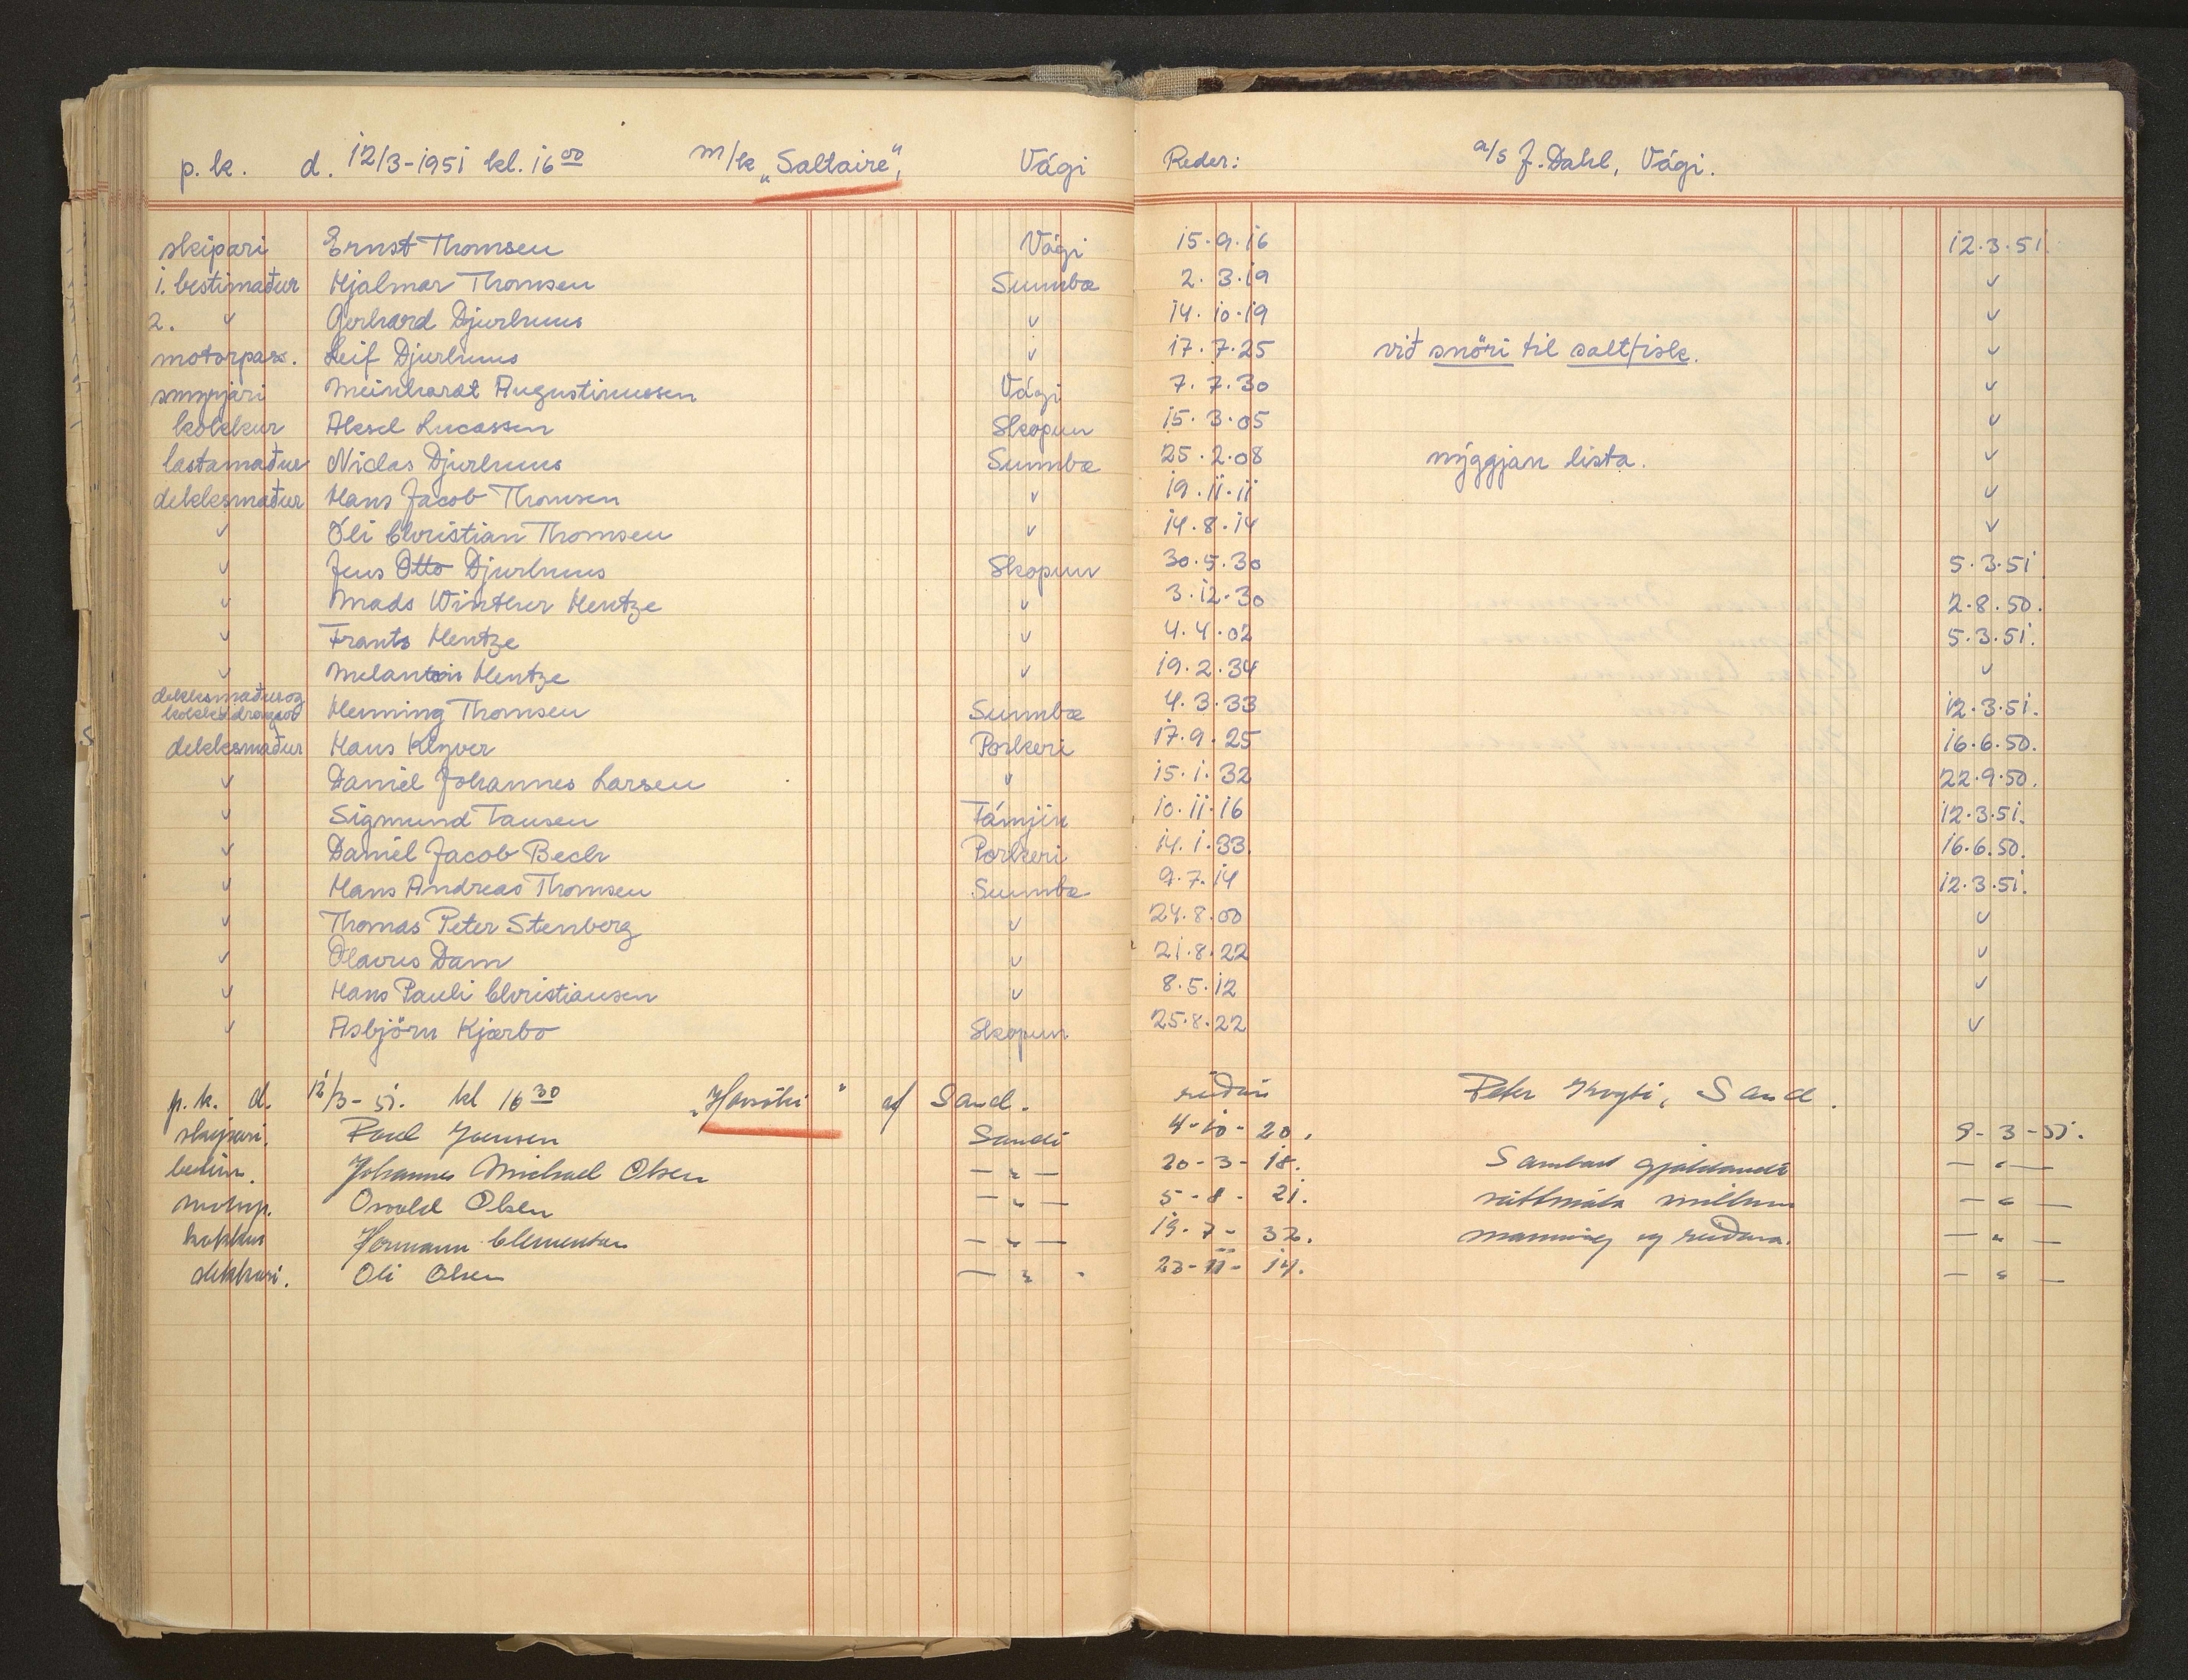 p.k. d. 12/3-1951 kl. 16 00 m/k „Saltaire", Vági Reder: a/s J. Dahl, Vági.
skipari Ernst Thomsen Vági 15.9.16 12.3.51.
1. bestimaður Hjalmar Thomsen Sumbæ 2.3.19 ✓
2. ✓ Gerhard Djurhuus ✓ 14.10.19 ✓
motorpass. Leif Djurhuus ✓ 17.7.25 við snöri til saltfisk. ✓
smyrjari Meinhardt Augustinussen Vági 7.7.30 ✓
kokkur Aksel Lucassen Skopun 15.3.05 ✓
lastamaður Niclas Djurhuus Sumbæ 25.2.08 nýggjan lista. ✓
dekksmaður Hans Jacob Thomsen ✓ 19.11.11 ✓
✓ Óli Christian Thomsen ✓ 14.8.14 ✓
✓ Jens Otto Djurhuus Skopun 30.5.30 5.3.51
✓ Mads Winther Hentze ✓ 3.12.30 2.8.50.
✓ Frants Hentze ✓ 4.4.02 5.3.51.
✓ Melanton Hentze ✓ 19.2.34 ✓
dekksmaður og Henning Thomsen Sumbæ 4.3.33 12.3.51.
dekksmaður Hans Klyver Porkeri 17.9.25 16.6.50.
✓ Daniel Johannes Larsen ✓ 15.1.32 22.9.50.
✓ Sigmund Tausen Fámjin 10.11.16 12.3.51.
✓ Daniel Jacob Bech Porkeri 14.1.33. 16.6.50.
✓ Hans Andreas Thomsen Sumbæ 9.7.14 12.3.51.
✓ Thomas Peter Stenberg ✓ 24.8.00 ✓
✓ Olavus Dam ✓ 21.8.22 ✓
✓ Hans Pauli Christiansen ✓ 8.5.12 ✓
✓ Asbjörn Kjærbo Skopun 25.8.22 ✓
p.k. d. 12/3-51. kl 16 30 af Sand. reiðari Peter Sand.
skipari. Poul Joensen Sandi 4-10-20. 9-3-51.
Johannes Michael Olsen — " — 20-3-18. Sambart gjaldandi — " —
motorp. Osvald Olsen — " — 5-8-21. millum — " —
kokkur Hermann Clementsen — " — 19-7-32. manning og reiðara. — " —
dekkari. Oli Olsen — " - 23-11-14. — " —